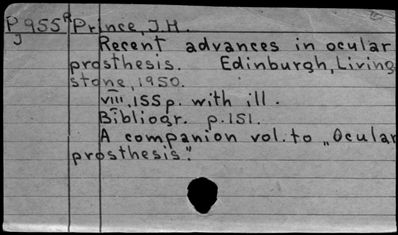 P 955 R Prince, J.H.
J Recent advances in ocular
prosthesis. Edinburgh, Living
stone, 1950.
viii, 155 p. with ill.
Bibliogr. p. 151.
A companion vol. to „Ocular
prosthesis".